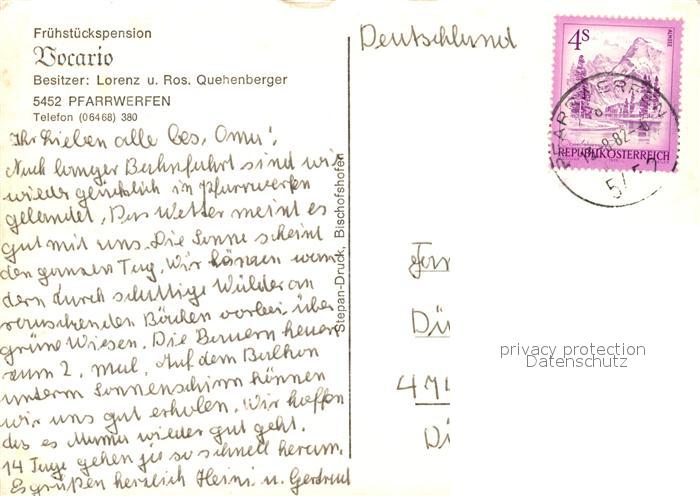 Frühstückspension
Vocario
Besitzer: Lorenz u. Ros. Quehenberger
5452 PFARRWERFEN
Telefon (06468) 380
Ihr Lieben alle bes. Omu!
Nach langer Bahnfahrt sind wir
wieder glücklich in Pfarrwerfen
gelandet. Das Wetter meint es
gut mit uns. Die Sonne scheint
den ganzen Tag. Wir können wan-
dern durch schattige Wälder an
rauschenden Bächen vorbei über
grüne Wiesen. Die Bauern heuen
zum 2. mal. Auf dem Balkon
unterm Sonnenschirm können
wir uns gut erholen. Wir hoffen
das es Mama wieder gut geht.
14 Tage gehen ja so schnell herum.
Es grüßen herzlich Heini u. Gertrud
Stepan-Druck, Bischofshofen
Deutschland
4S
ALMSEE
REPUBLIK ÖSTERREICH
PFARRWERFEN
Dü
Di
privacy protection
Datenschutz